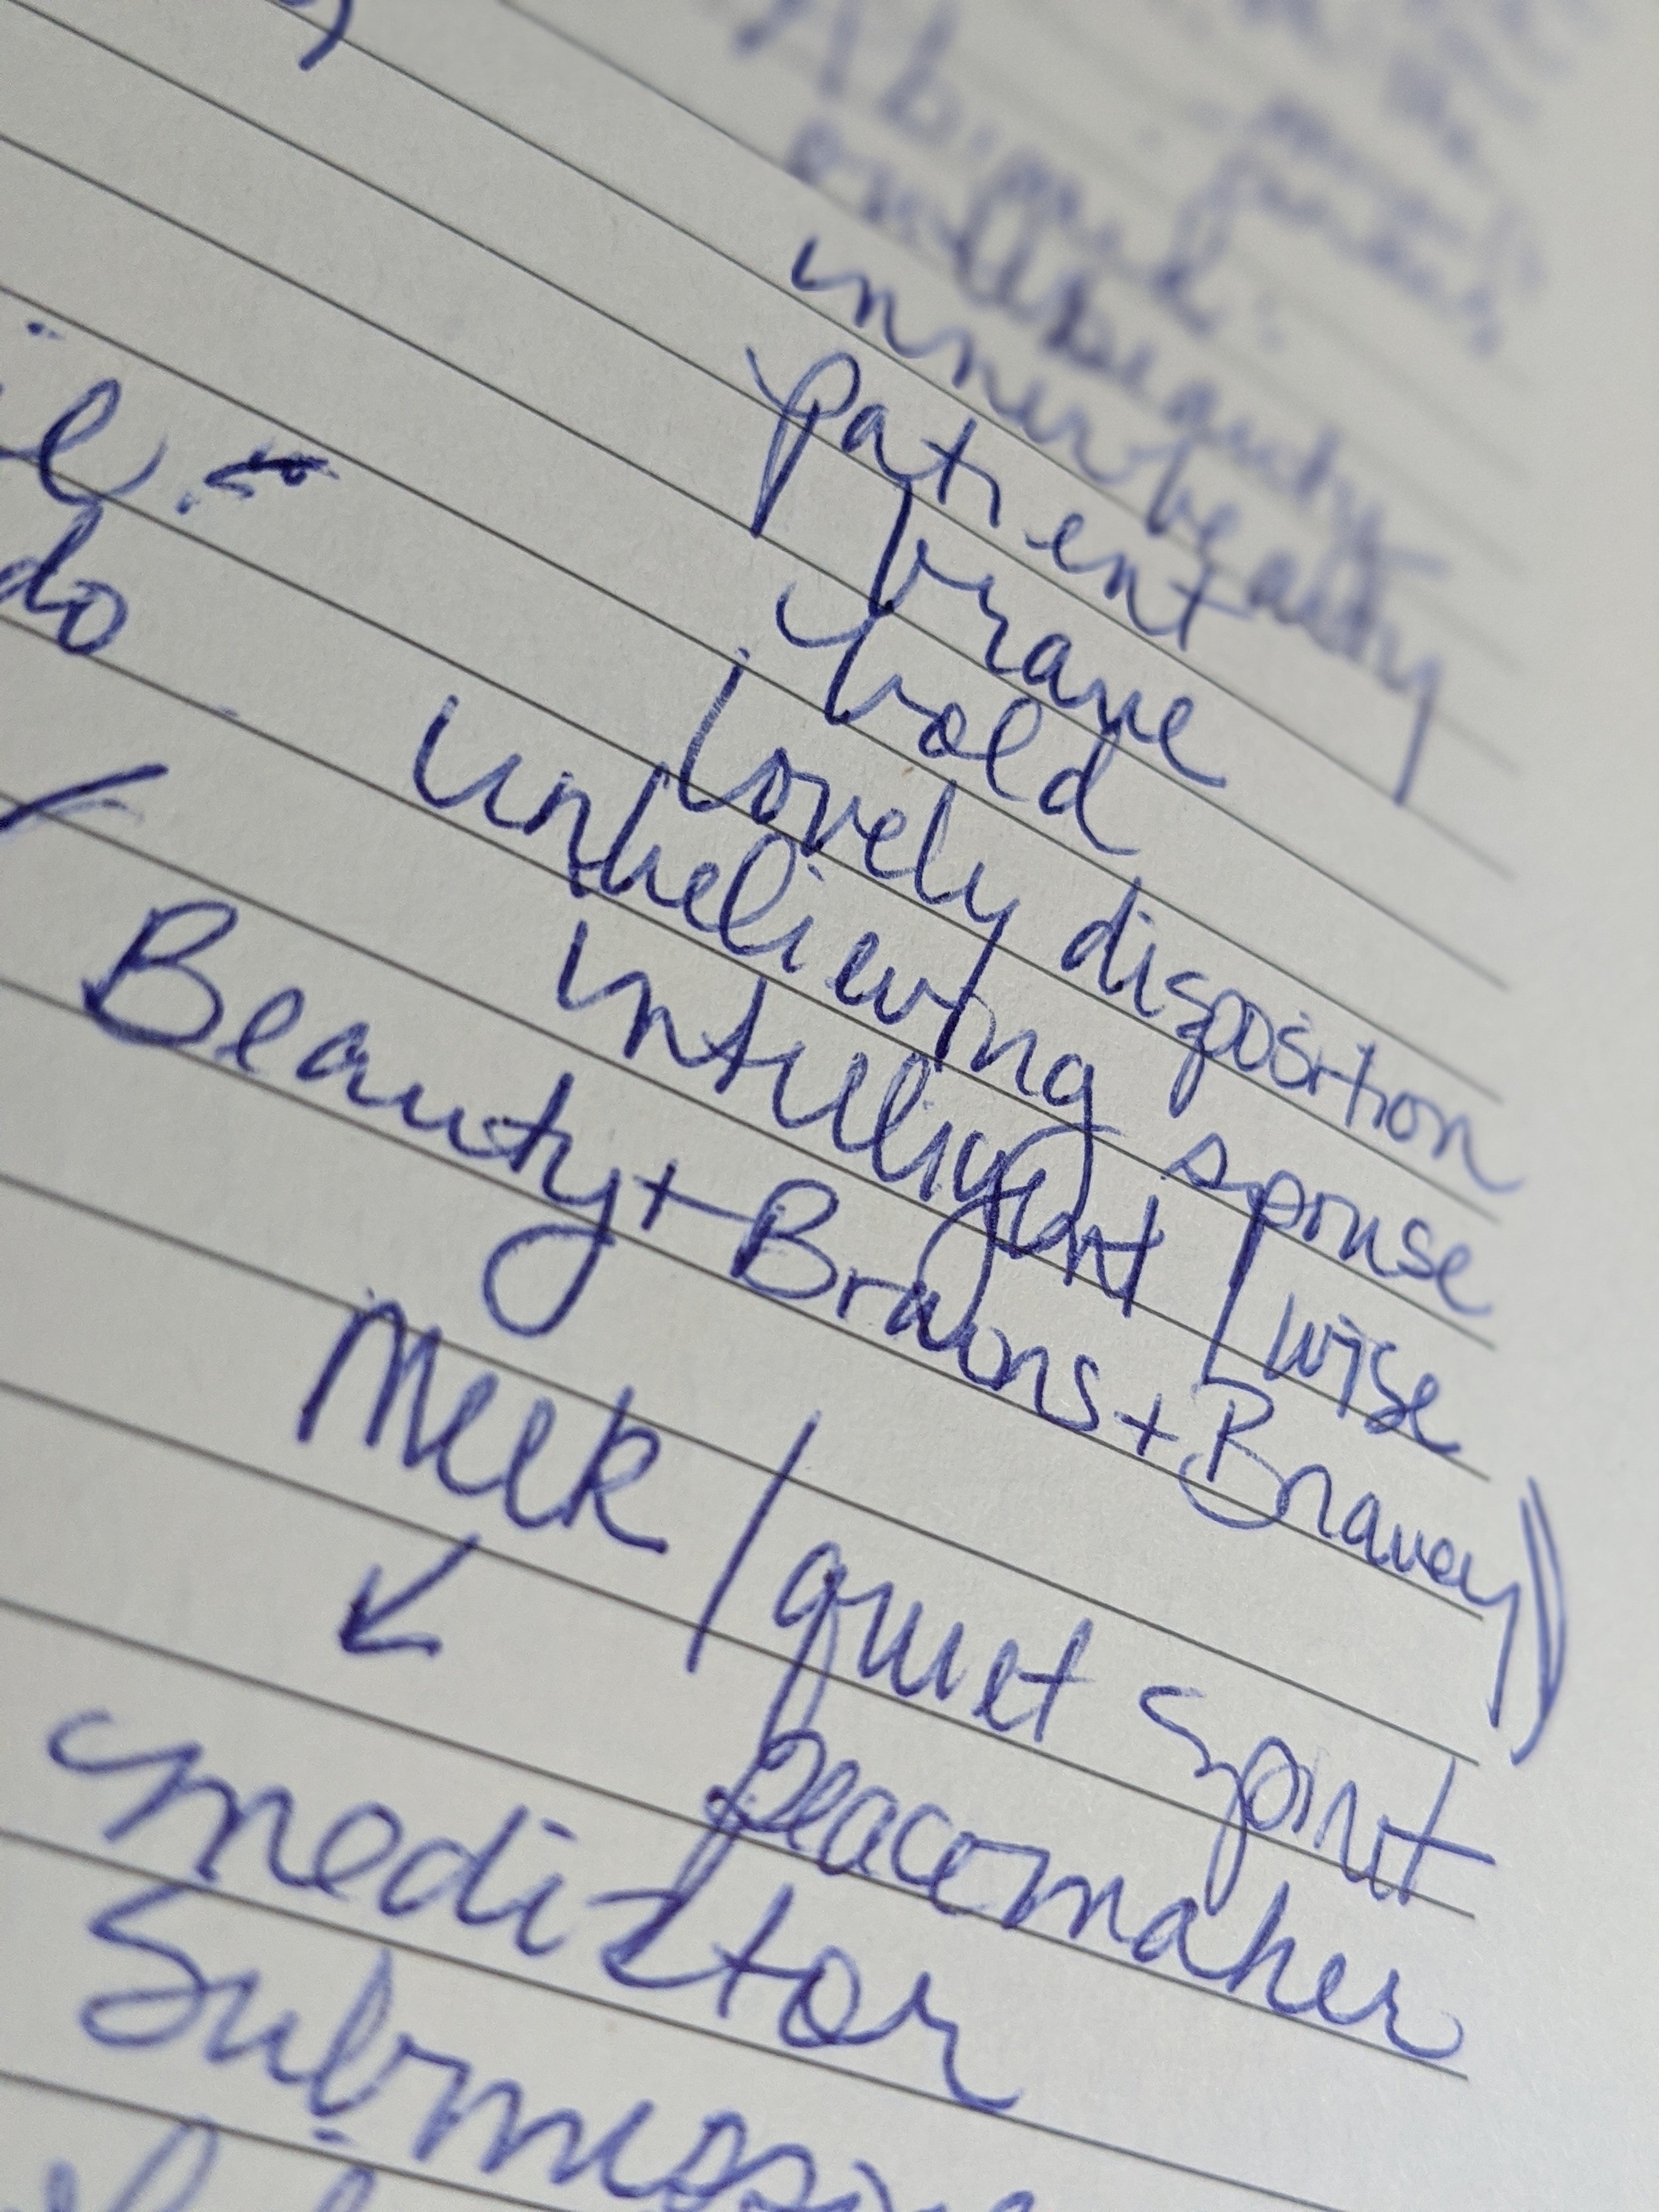 Abigail:
inner beauty
patient
brave
bold
lovely disposition
unbelieving spouse
intelligent / wise
Beauty + Brains + Bravey
Meek / quiet spirit
peacemaker
mediator
do